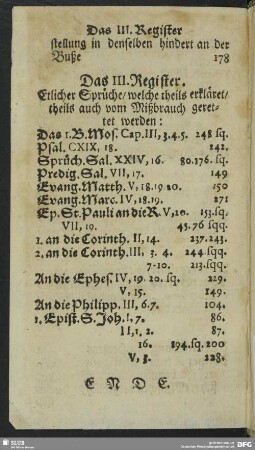 Das III. Register
stellung in denselben hindert an der
Buße 178
Das III. Register.
Etlicher Sprüche/ welche theils erkläret/
theils auch vom Mißbrauch geret-
tet werden:
Das 1. B. Mos. Cap. III, 3.4.5. 248 sq.
Psal. CXIX, 18. 242.
Sprüch. Sal. XXIV, 16. 80.176. sq.
Predig. Sal. VII, 17. 149
Evang. Matth. V, 18.19 20. 150
Evang. Marc. IV, 18.19. 271
Ep. St. Pauli an die R. V, 20. 153. sq.
VII, 19. 45.76 sqq.
1. an die Corinth. II, 14. 237.243.
2. an die Corinth. III, 3. 4. 244 sqq.
7-10. 213. sqq.
An die Ephes. IV, 19. 20. sq. 229.
V, 15. 149.
An die Philipp. III, 6.7. 104.
1. Epist. S. Joh. I, 7. 86.
II, 1. 2. 87.
16. 194. sq. 200
V, 3. 128.
E N D E.
SLUB